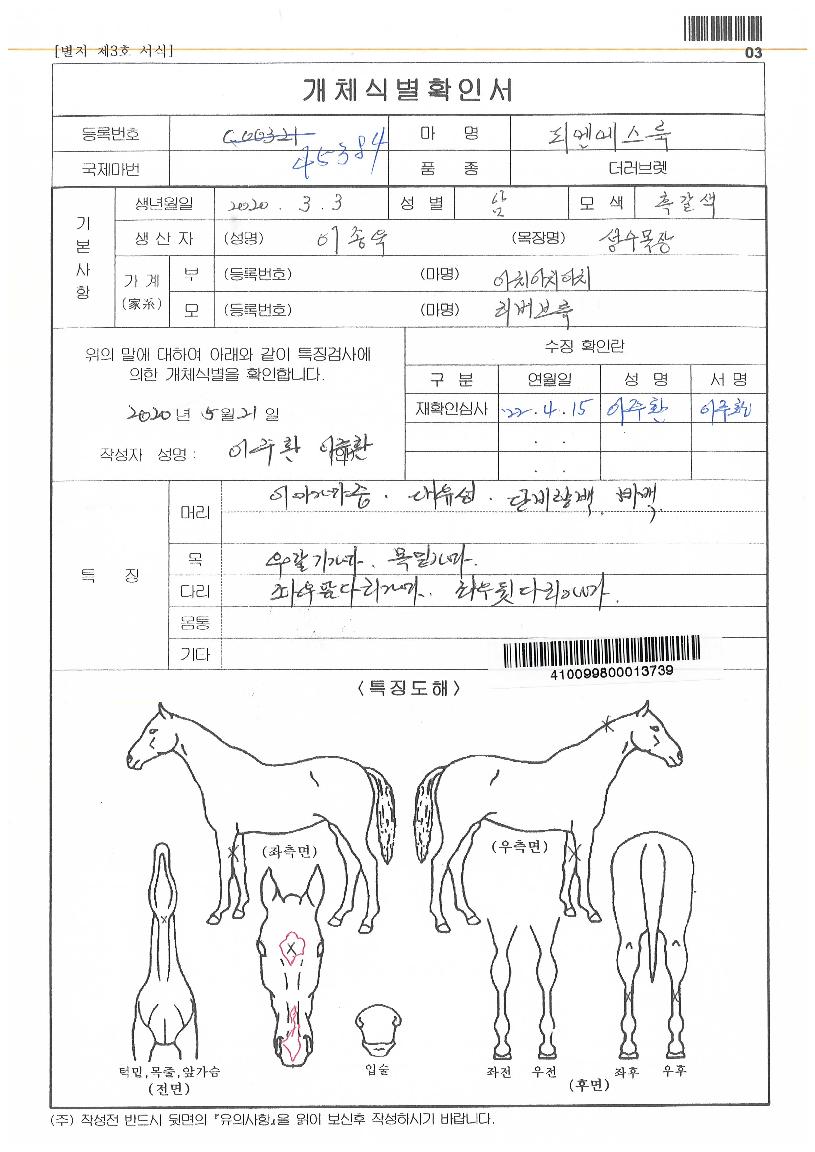 [별지 제3호 서식]
03
개체식별확인서
등록번호 45384 마 명 티엔에스룩
국제마번 품 종 더러브렛
기본사항
생년월일 2020 . 3 . 3 성 별 암 모 색 흑갈색
생 산 자 (성명) 이종욱 (목장명) 성수목장
가 계 (家系) 부 (등록번호) (마명) 아치아치아치
모 (등록번호) (마명) 리버브룩
위의 말에 대하여 아래와 같이 특징검사에
의한 개체식별을 확인합니다.
2020 년 5 월 21 일
작성자 성명 : 이주환 이주환
수징 확인란
구 분 연월일 성 명 서 명
재확인심사 22 . 4 . 15 이주환 이주환
. .
. .
특 징
머리
목
다리
몸통
기다
410099800013739
<특징도해>
(좌측면) (우측면)
턱밑,목줄,앞가슴
(전면)
입술
좌전 우전 좌후 우후
(후면)
(주) 작성전 반드시 뒷면의 『유의사항』을 읽어 보신후 작성하시기 바랍니다.